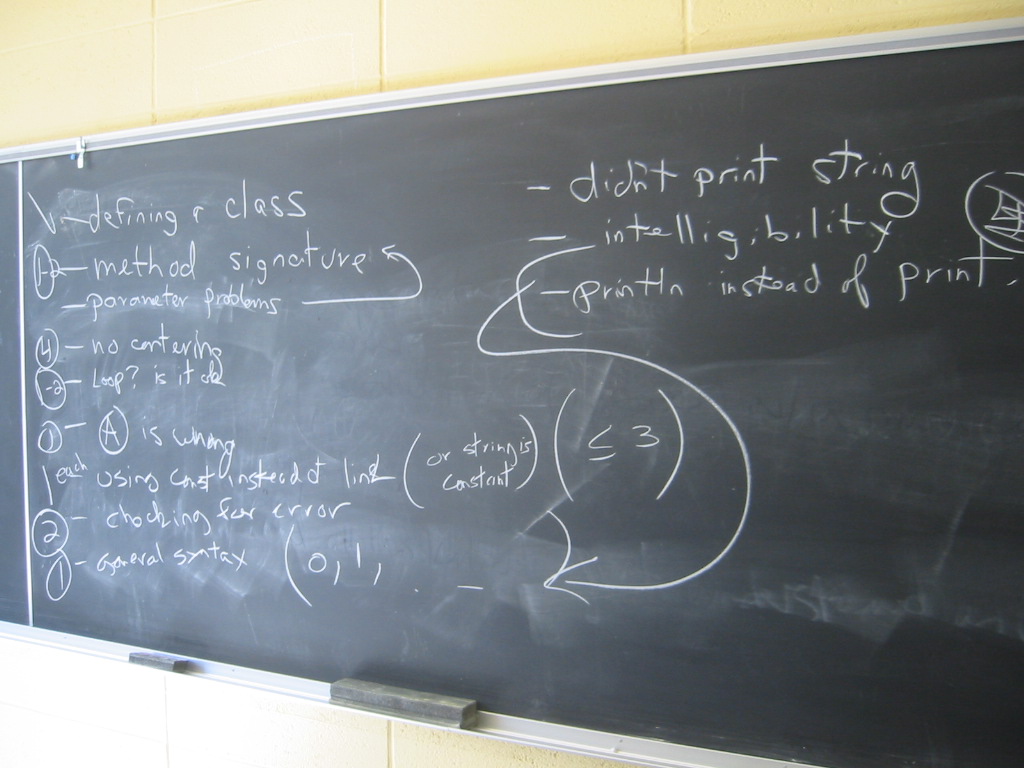 - defining a class
1-2 - method signature
- parameter problems
4 - no centering
1-2 - Loop? is it ok
1 - A is wrong
1 each using const instead of (or string is constant) (≤ 3)
2 - checking for error
1 - general syntax (0, 1,
- didn't print string
- intelligibility
- println instead of print.